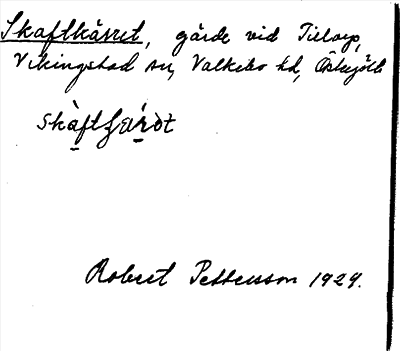 Skaftkärret, gärde vid Tillorp,
Vikingstad sn, Valkebo hd, Östergötl
Robert Pettersson 1929.